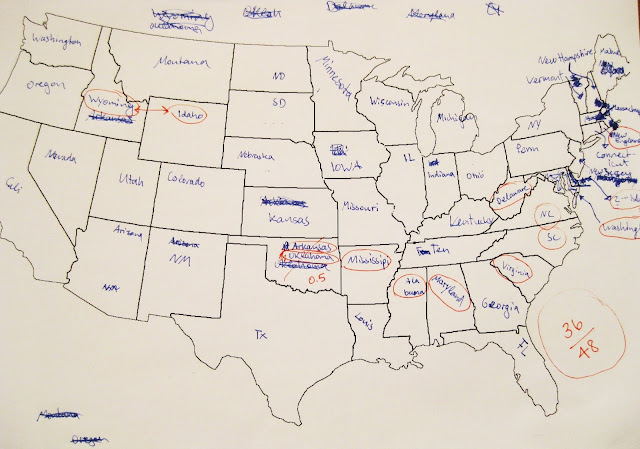 Wyoming
Oklahoma
Delaware
Maryland
Washington
Montana
ND
Minnesota
Wisconsin
Michigan
New Hampshire
Vermont
Maine
Oregon
Wyoming
Arkansas
Idaho
SD
NY
New England
Connecticut
New Jersey
Nebraska
IOWA
IL
Indiana
Ohio
Penn
Delaware
Washington
Cali
Nevada
Utah
Colorado
Arkansas
Kansas
Missouri
Kentucky
NC
SC
Arizona
Arizona
NM
Arkansas
0.5
Mississipi
Ten
Ala
bama
Maryland
Georgia
Virginia
TX
Louis
FL
36
48
Montana
Oregon